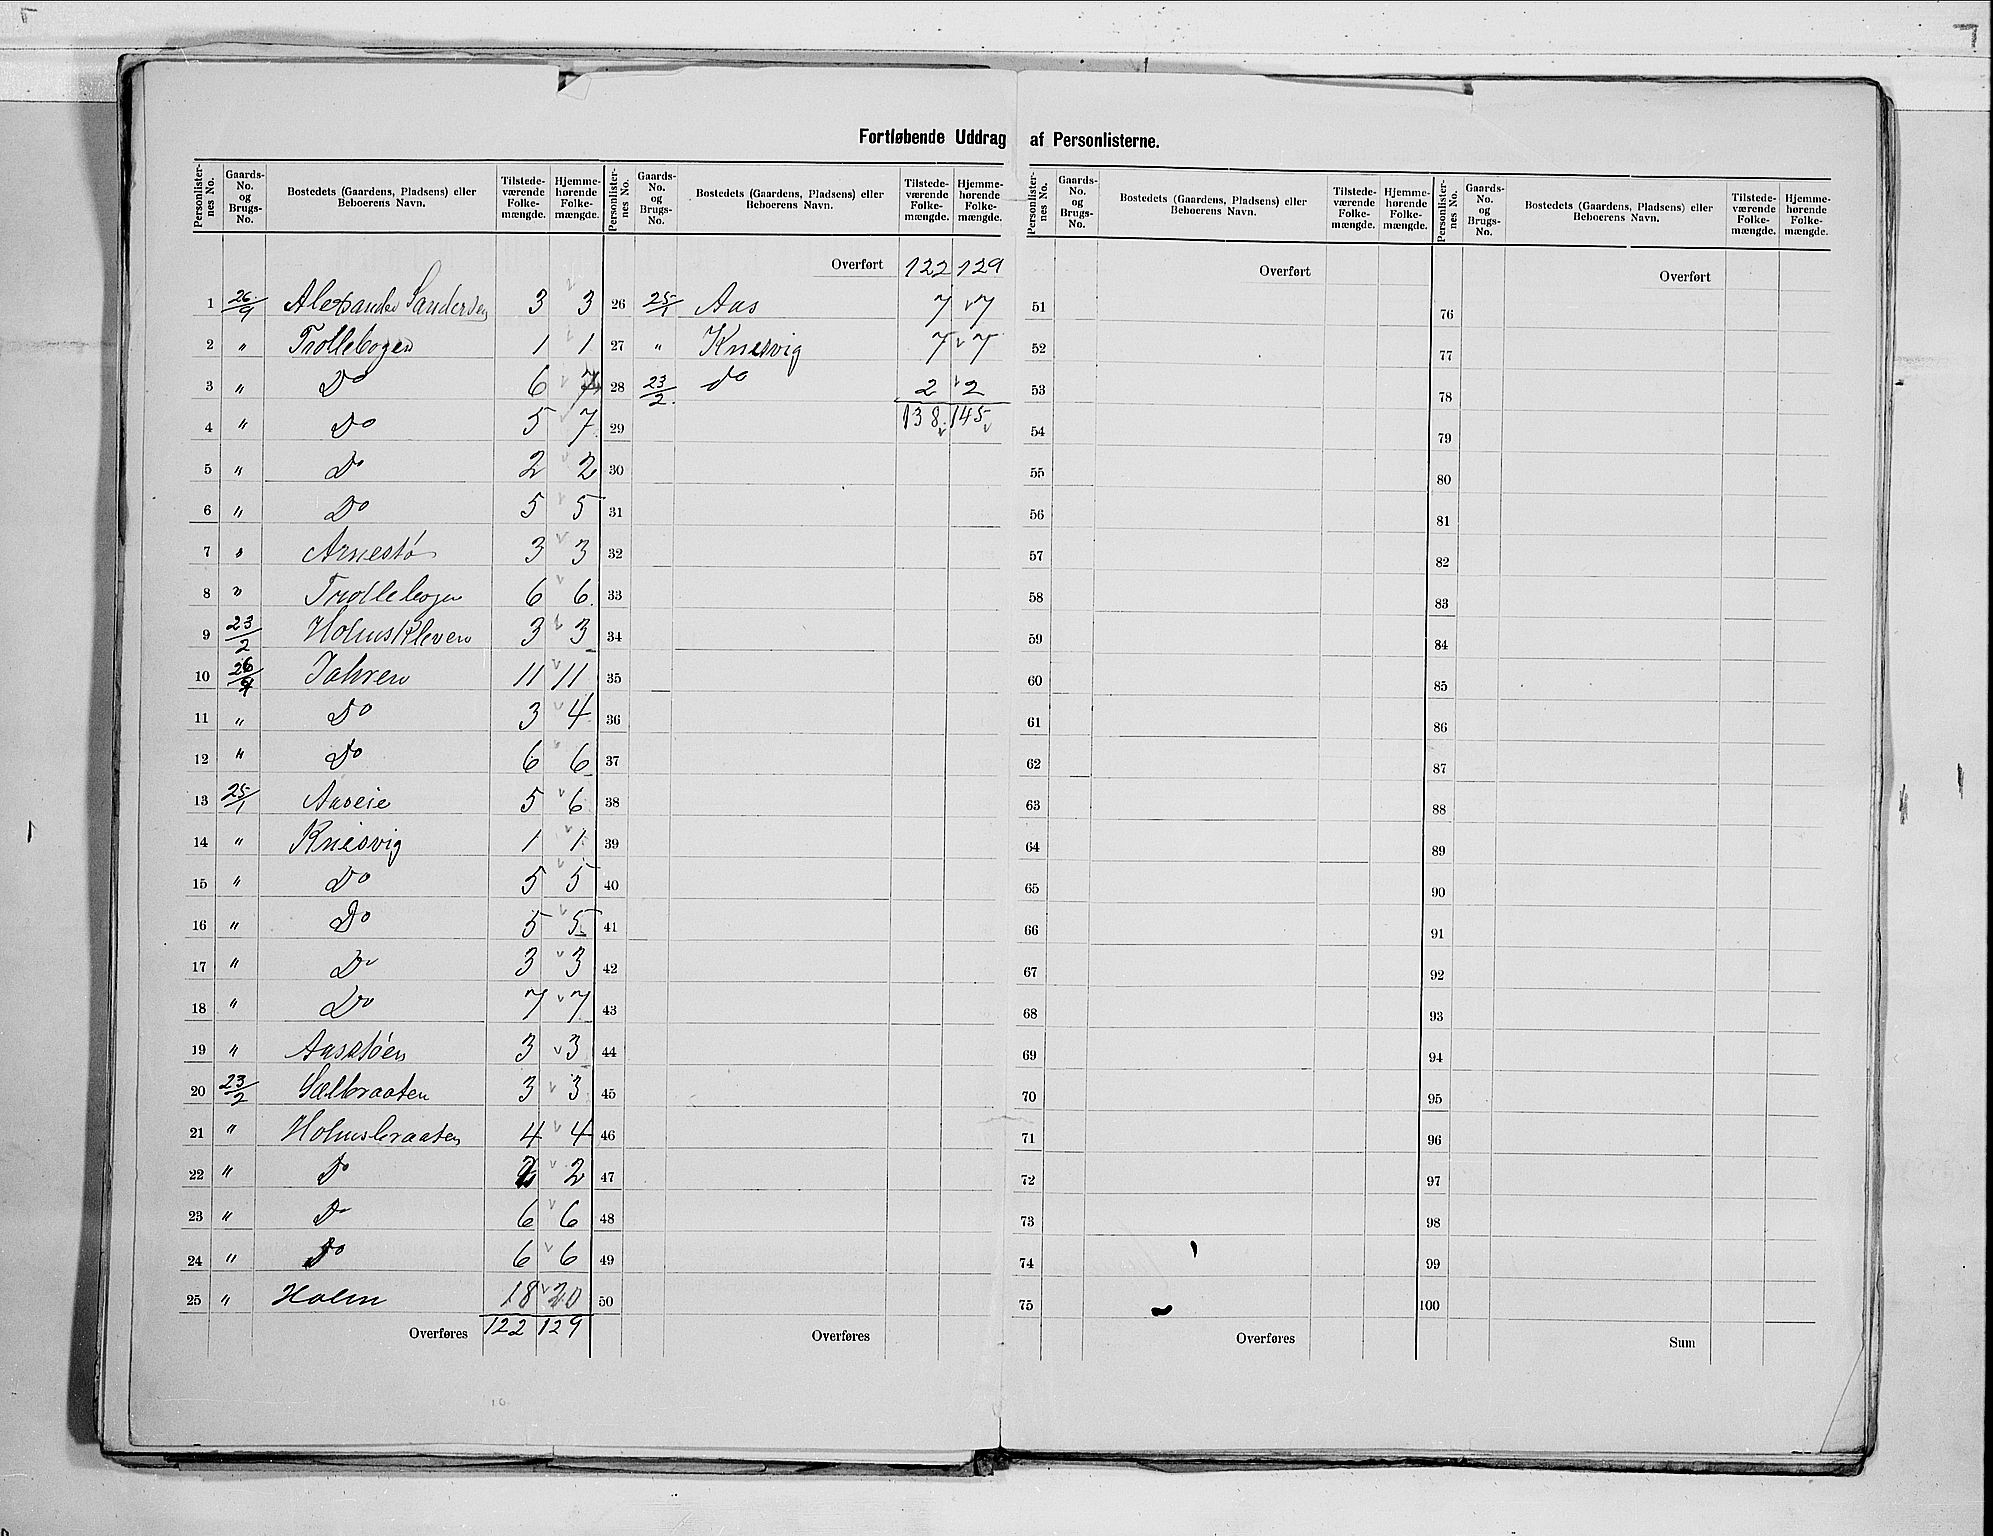 Fortløbende Uddrag af Personlisterne.
Personlister-nes No. Gaards-No. og Brugs-No. Bostedets (Gaardens, Pladsens) eller Beboerens Navn. Tilstede-værende Folke-mængde. Hjemme-hørende Folke-mængde.
1 26/9 Alexander Sandersen 3 3
2 " Trollebogen 1 1
3 " Do 6 7
4 " Do 5 7
5 " Do 2 2
6 " Do 5 5
7 " Arnestø 3 3
8 " Trollebogen 6 6
9 23/2 Holmskleven 3 3
10 26/9 Jahren 11 11
11 " Do 3 4
12 " Do 6 6
13 25/1 Aaseie 5 6
14 " Knesvig 1 1
15 " Do 5 5
16 " Do 5 5
17 " Do 3 3
18 " Do 7 7
19 " Aasstøen 3 3
20 23/2 Sælbraaten 3 3
21 " Holmsbraaten 4 4
22 " Do 2 2
23 " Do 6 6
24 " Do 6 6
25 " Holm 18 20
Overføres 122 129
Personlister-nes No. Gaards-No. og Brugs-No. Bostedets (Gaardens, Pladsens) eller Beboerens Navn. Tilstede-værende Folke-mængde. Hjemme-hørende Folke-mængde.
Overført 122 129
26 25/1 Aas 7 7
27 " Knesvig 7 7
28 23/2 do 2 2
29 138 145
30
31
32
33
34
35
36
37
38
39
40
41
42
43
44
45
46
47
48
49
50
Overføres
Personlister-nes No. Gaards-No. og Brugs-No. Bostedets (Gaardens, Pladsens) eller Beboerens Navn. Tilstede-værende Folke-mængde. Hjemme-hørende Folke-mængde.
Overført
51
52
53
54
55
56
57
58
59
60
61
62
63
64
65
66
67
68
69
70
71
72
73
74
75
Overføres
Personlister-nes No. Gaards-No. og Brugs-No. Bostedets (Gaardens, Pladsens) eller Beboerens Navn. Tilstede-værende Folke-mængde. Hjemme-hørende Folke-mængde.
Overført
76
77
78
79
80
81
82
83
84
85
86
87
88
89
90
91
92
93
94
95
96
97
98
99
100
Sum